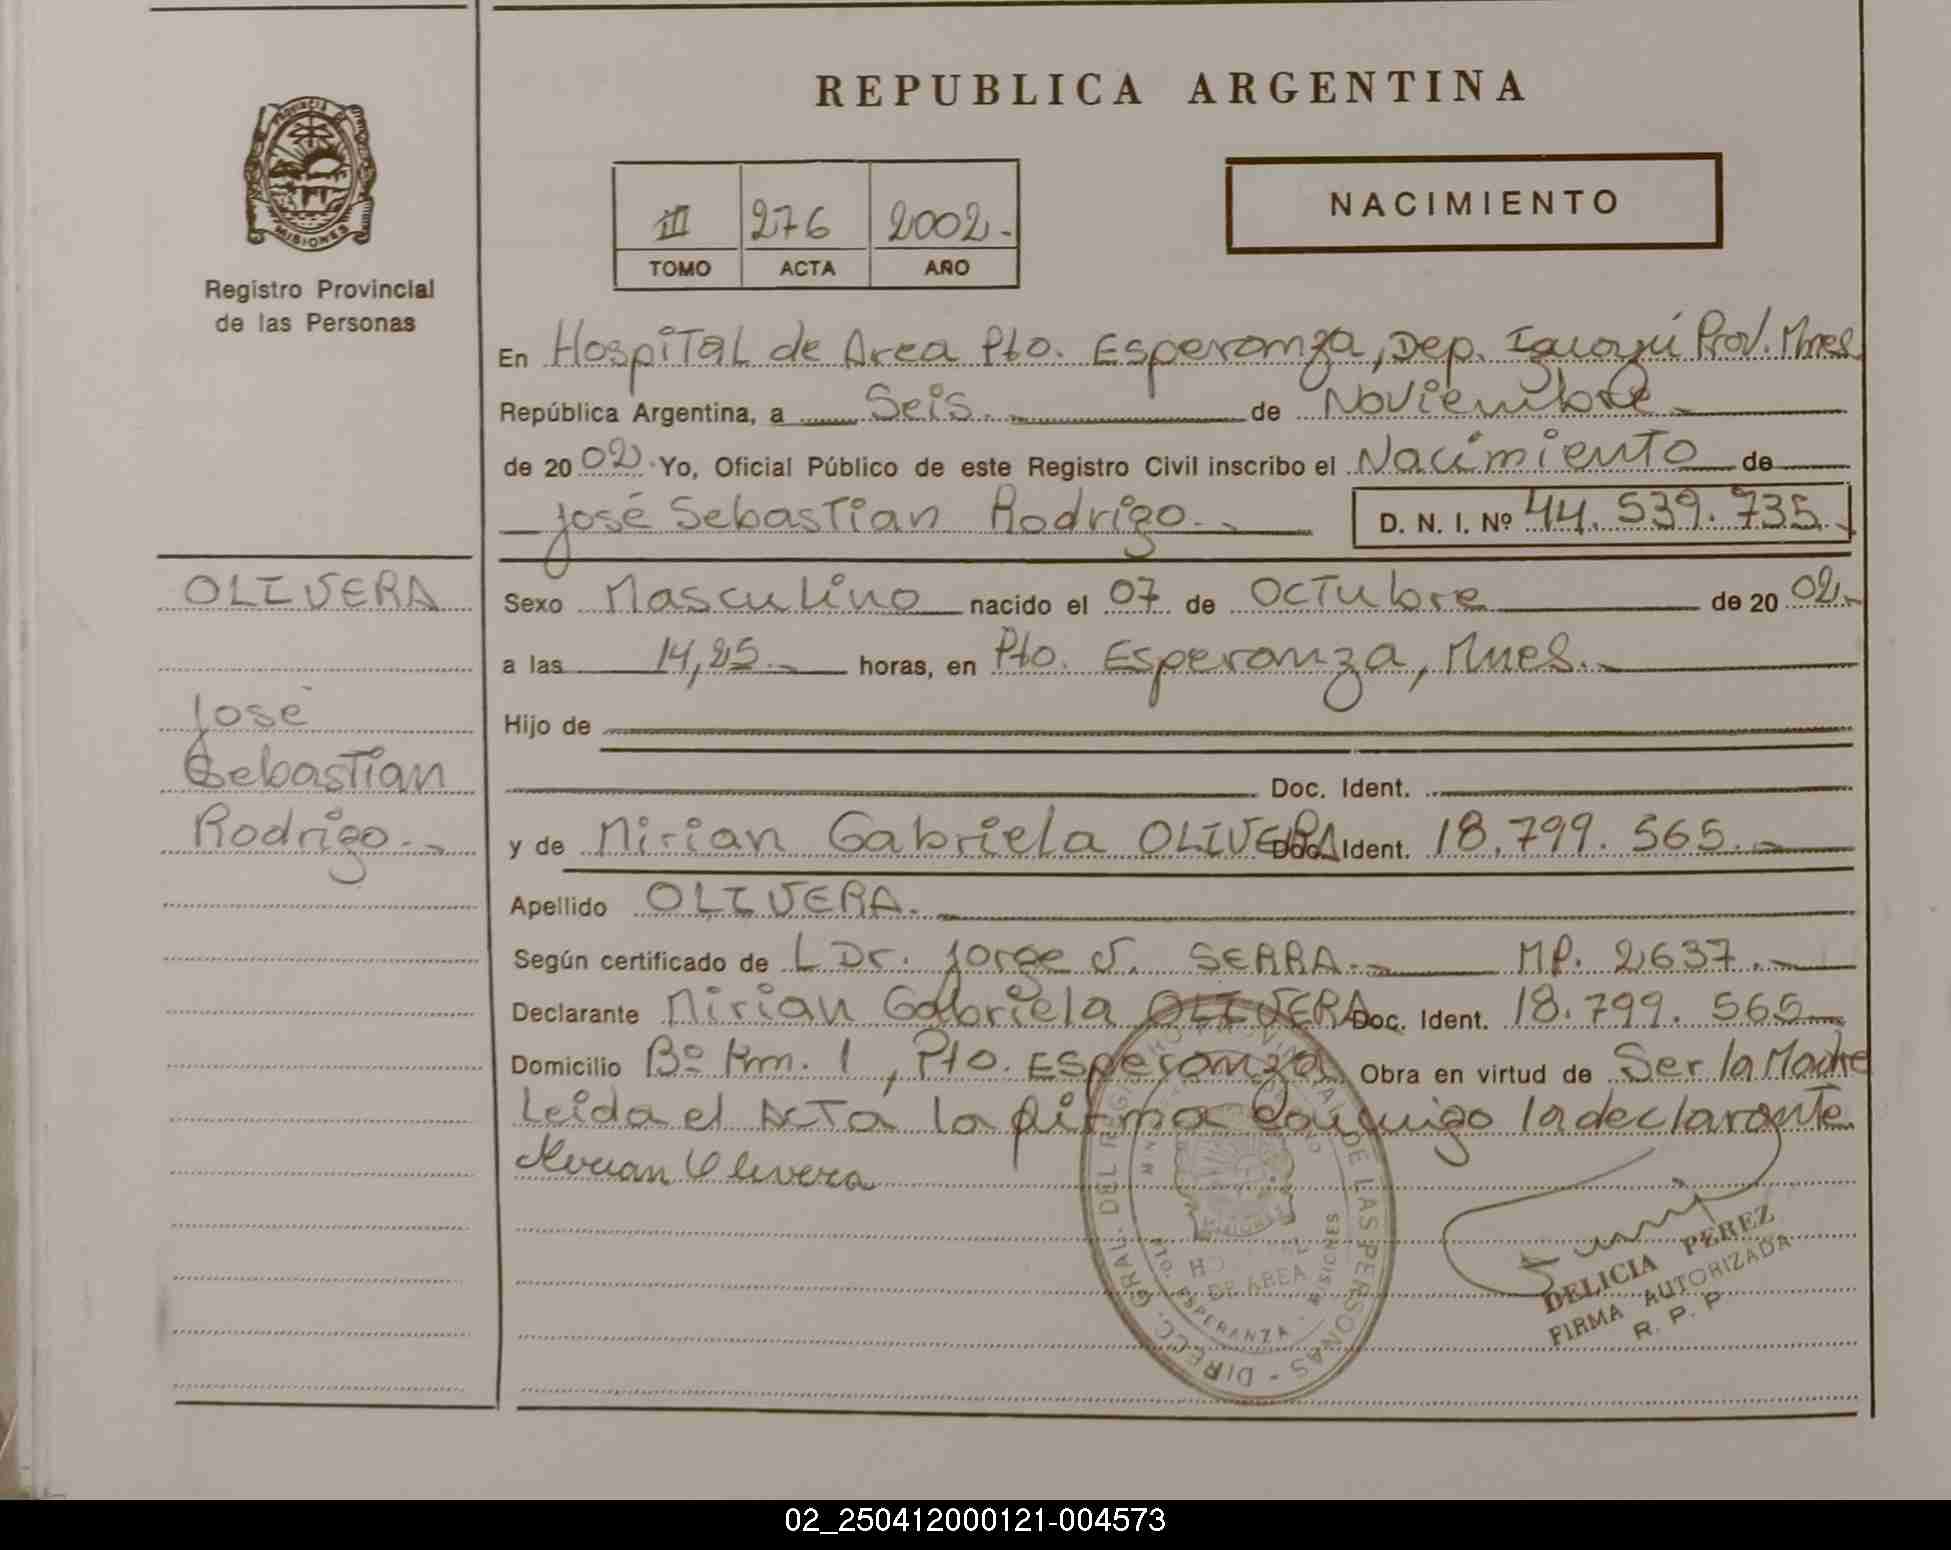 REPUBLICA ARGENTINA
PROVINCIA
MISIONES
Registro Provincial
de las Personas
III 276 2002.-
TOMO ACTA AÑO
NACIMIENTO
En Hospital de Area Pto. Esperanza, Dep. Iguazú Prov. Mnes
República Argentina, a Seis.- de Noviembre.-
de 2002. Yo, Oficial Público de este Registro Civil inscribo el Nacimiento de
José Sebastian Rodrigo.- D. N. I. Nº 44.539.735.-
OLIVERA
José
Sebastian
Rodrigo.-
Sexo Masculino nacido el 07 de Octubre de 2002.-
a las 14,25.- horas, en Pto. Esperanza, Mnes.-
Hijo de
Doc. Ident.
y de Mirian Gabriela OLIVERA Doc. Ident. 18.799.565.-
Apellido OLIVERA.-
Según certificado de L Dr. Jorge J. SERRA.- MP. 2637.-
Declarante Mirian Gabriela OLIVERA Doc. Ident. 18.799.565.-
Domicilio Bº Km. 1, Pto. Esperanza Obra en virtud de Ser la Madre
Leida el ACTA la firma conmigo la declarante
Mirian Olivera
DIRECC. GRAL. DEL REGISTRO PROVINCIAL DE LAS PERSONAS
HOSPITAL
DE AREA
PTO. ESPERANZA - MISIONES
DELICIA PEREZ
FIRMA AUTORIZADA
R. P. P
02_250412000121-004573